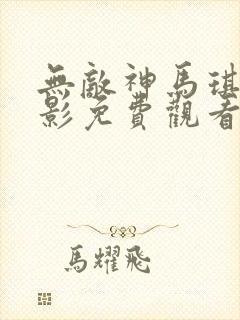 無敵神馬琪
影免費觀看
馬耀飛